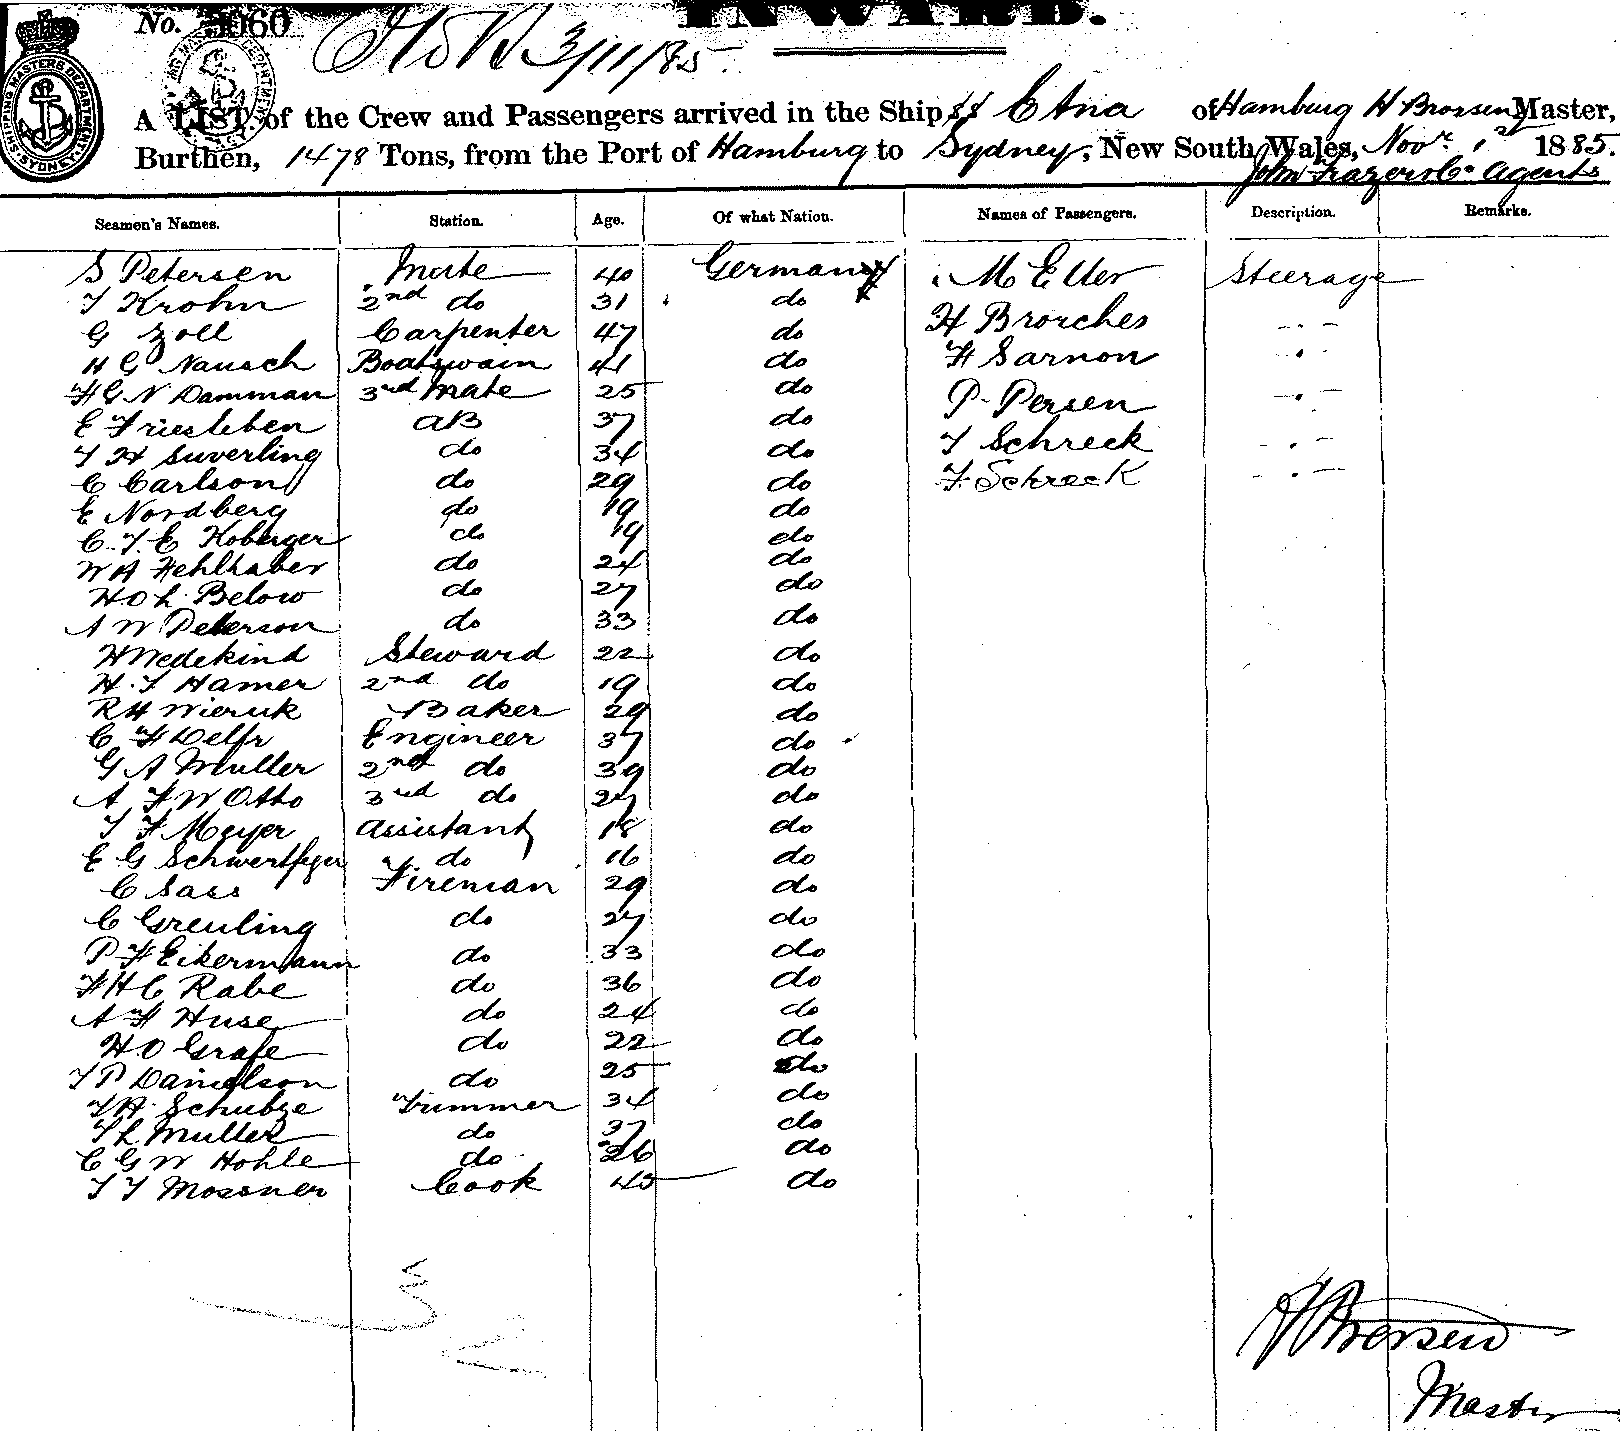 INWARD.
No. 3060
3/11/85.
SHIPPING MASTERS DEPARTMENT
A LIST of the Crew and Passengers arrived in the Ship SS Etna of Hamburg H Brorsen Master,
Burthen, 1478 Tons, from the Port of Hamburg to Sydney, New South Wales, Novr. 1st 1885.
John Frazer & Co Agents
Seamen's Names. Station. Age. Of what Nation. Names of Passengers. Description. Remarks.
S Petersen Mate 40 Germany M Etter Steerage
T Krohn 2nd do 31 do
G Zoll Carpenter 47 do H Brorches -.-
H G Nausch Boatswain 41 do H Sarnon .
H G N Damman 3rd Mate 25 do P. Persen -.-
E Friesleben AB 37 do
T H Suverling do 34 do T Schreck -.-
C Carlson do 29 do F. Schreck -.-
E Nordberg do 19 do
C. T. E Koberger do 19 do
W A Fehlhaber do 24 do
H O L Below do 27 do
A W Peterson do 33 do
H Wedekind Steward 22 do
H. T Hamer 2nd do 19 do
R H Wieruk Baker 29 do
C F Delfs Engineer 37 do
G A Muller 2nd do 39 do
A F W Otto 3rd do 27 do
T F Meyer Assistant 18 do
E G Schwertfeger do 16 do
C Sass Fireman 29 do
C Greuling do 27 do
P F Eikermann do 33 do
F H C Rabe do 36 do
A F Huse do 24 do
H O Grafe do 22 do
T P Danielson do 25 do
T A Schubze Trimmer 34 do
T L Muller do 37 do
C G W Hohle do 26 do
T T Mossner Cook 45 do
H Brorsen
Master